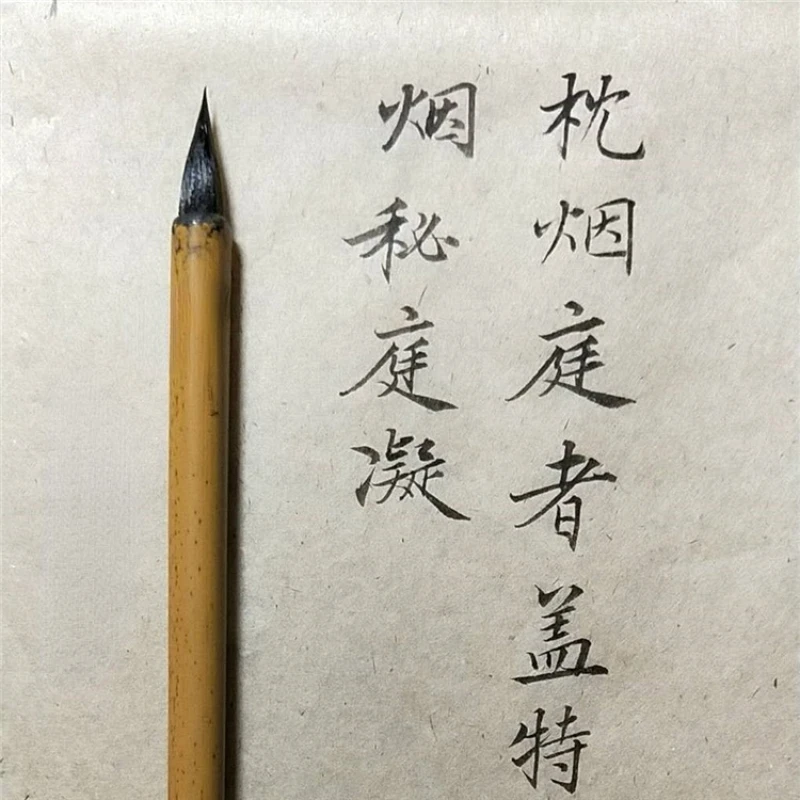 枕烟庭者盖特
烟秘庭凝